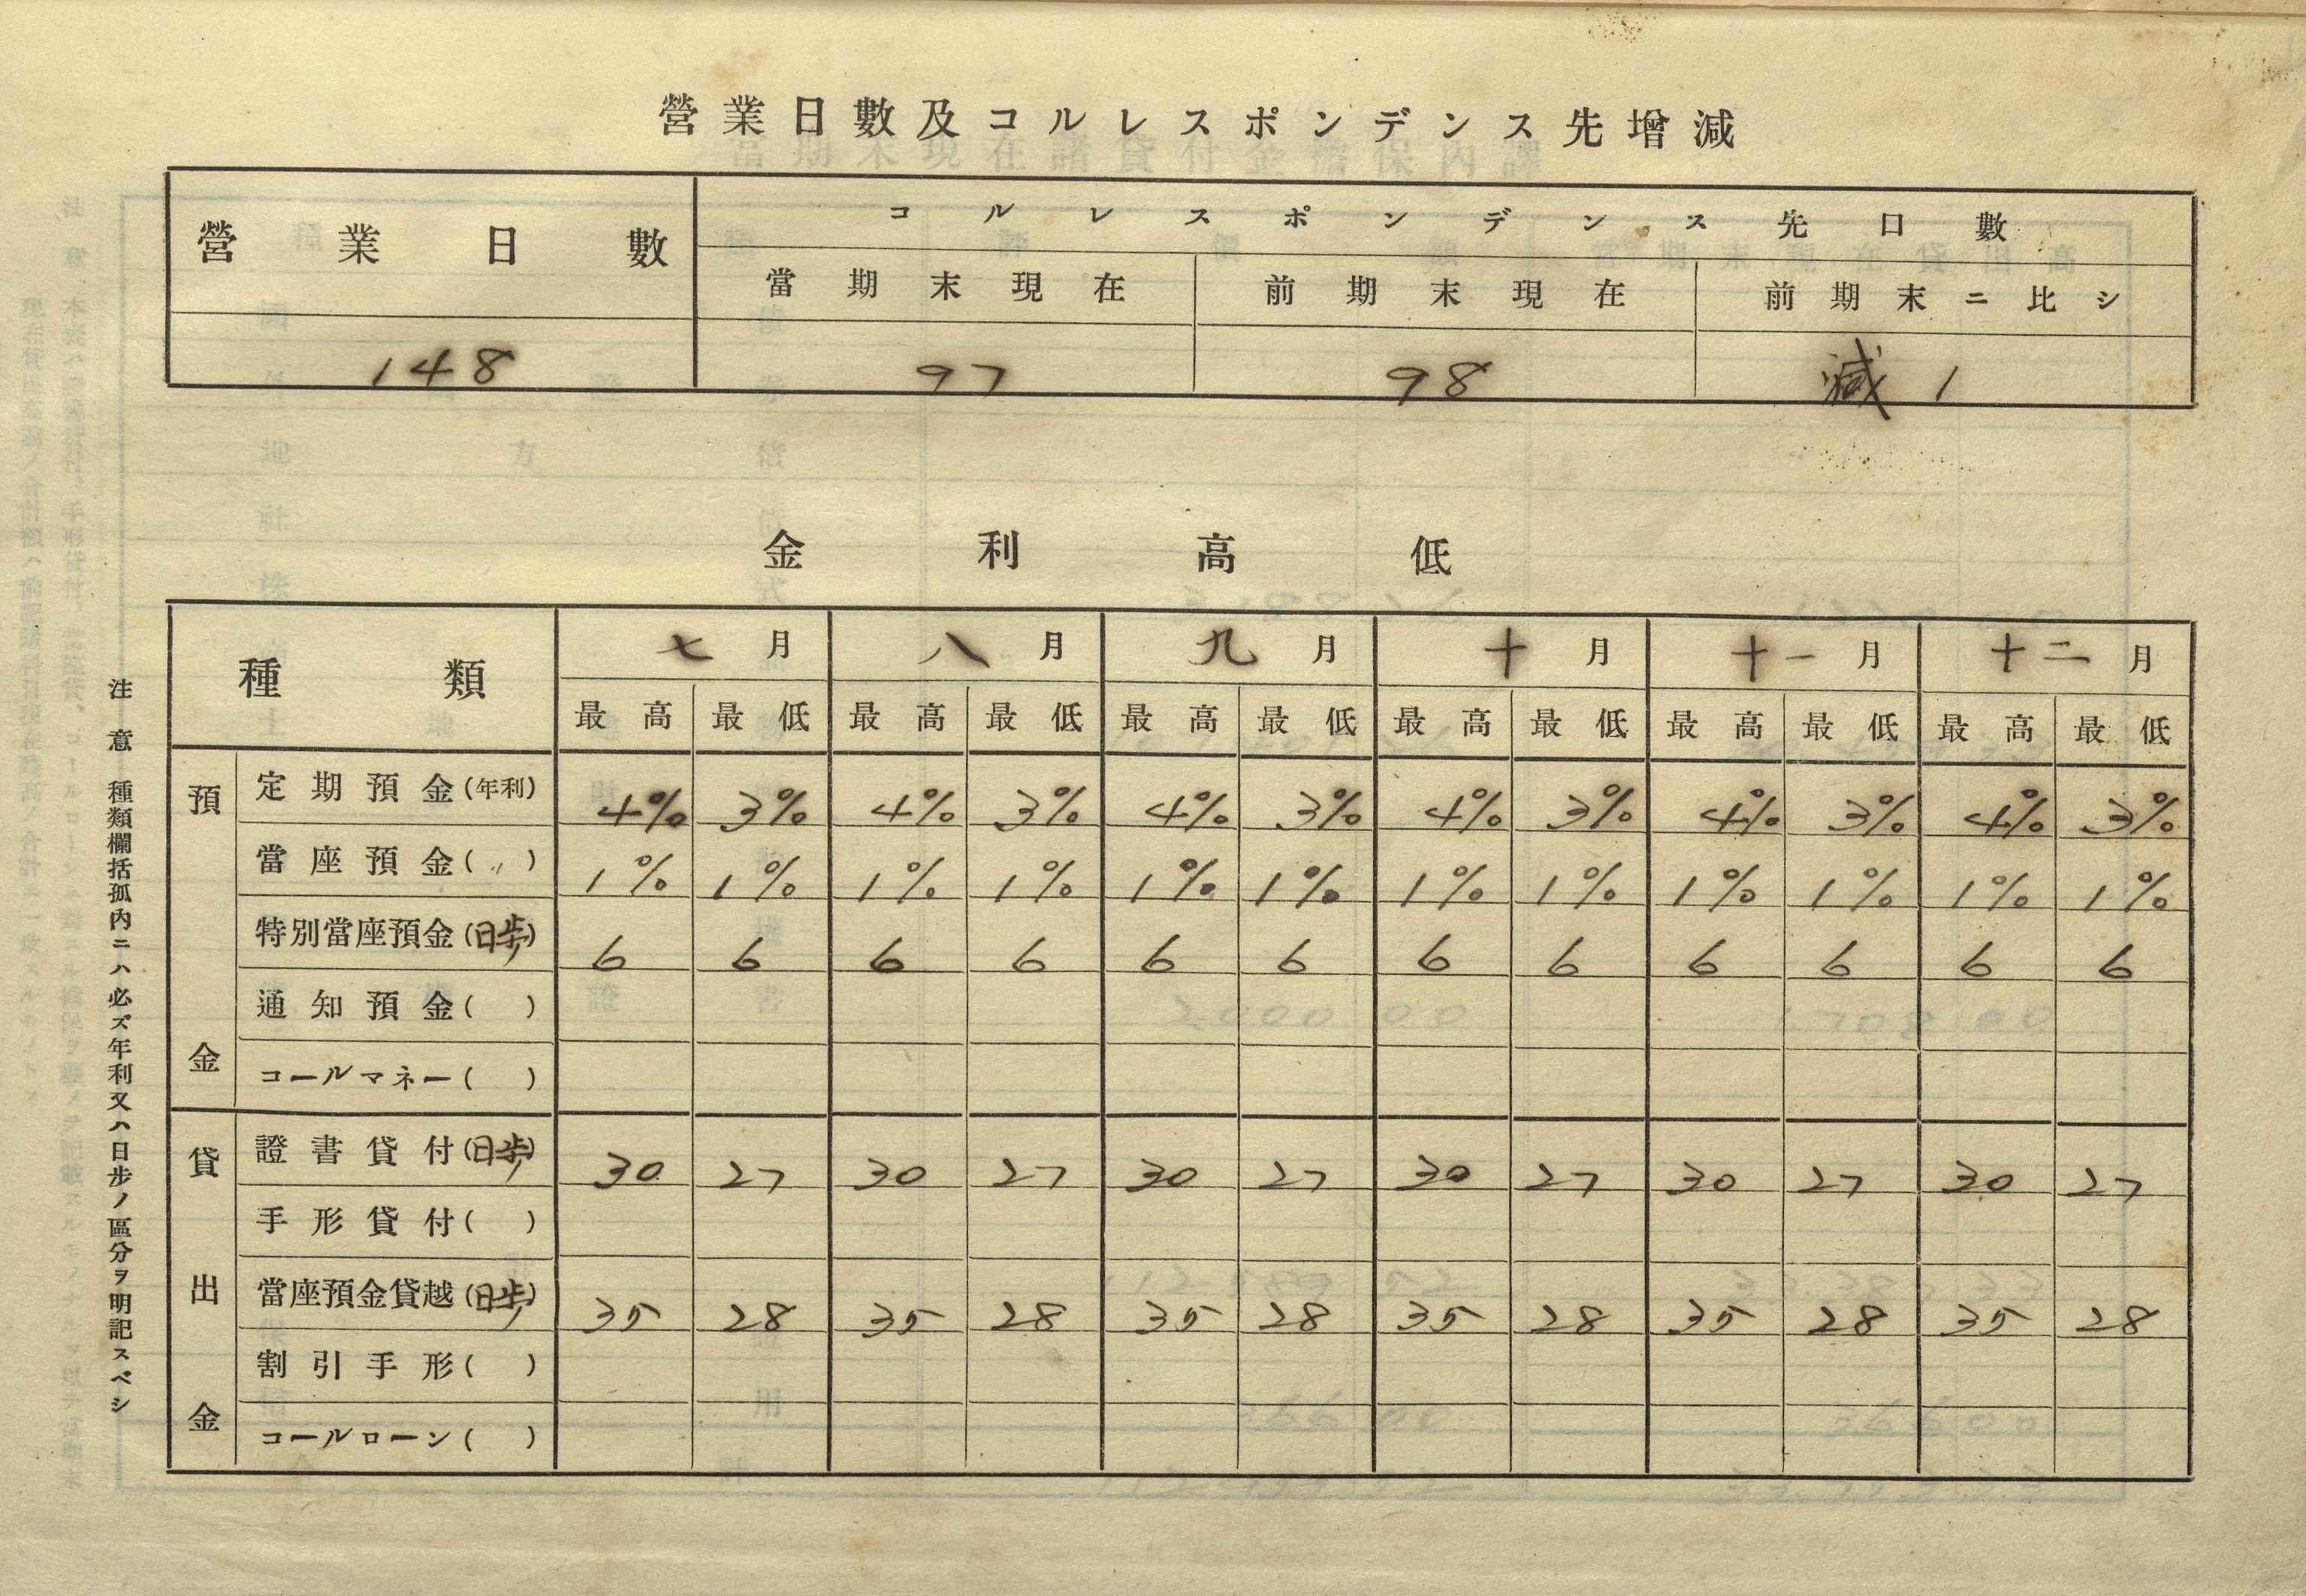 營業日數及コルレスポンデンス先增減
營業日數
コルレスポンデンス先口數
當期末現在 前期末現在 前期末ニ比シ
148 97 98 減 1
金利高低
種類 七月 八月 九月 十月 十一月 十二月
最高 最低 最高 最低 最高 最低 最高 最低 最高 最低 最高 最低
預金
定期預金(年利) 4% 3% 4% 3% 4% 3% 4% 3% 4% 3% 4% 3%
當座預金(〃) 1% 1% 1% 1% 1% 1% 1% 1% 1% 1% 1% 1%
特別當座預金(日歩) 6 6 6 6 6 6 6 6 6 6 6 6
通知預金( )
コールマネー( )
貸出金
證書貸付(日歩) 30 27 30 27 30 27 30 27 30 27 30 27
手形貸付( )
當座預金貸越(日歩) 35 28 35 28 35 28 35 28 35 28 35 28
割引手形( )
コールローン( )
注意 種類欄括孤内ニハ必ズ年利又ハ日步ノ區分ヲ明記スベシ